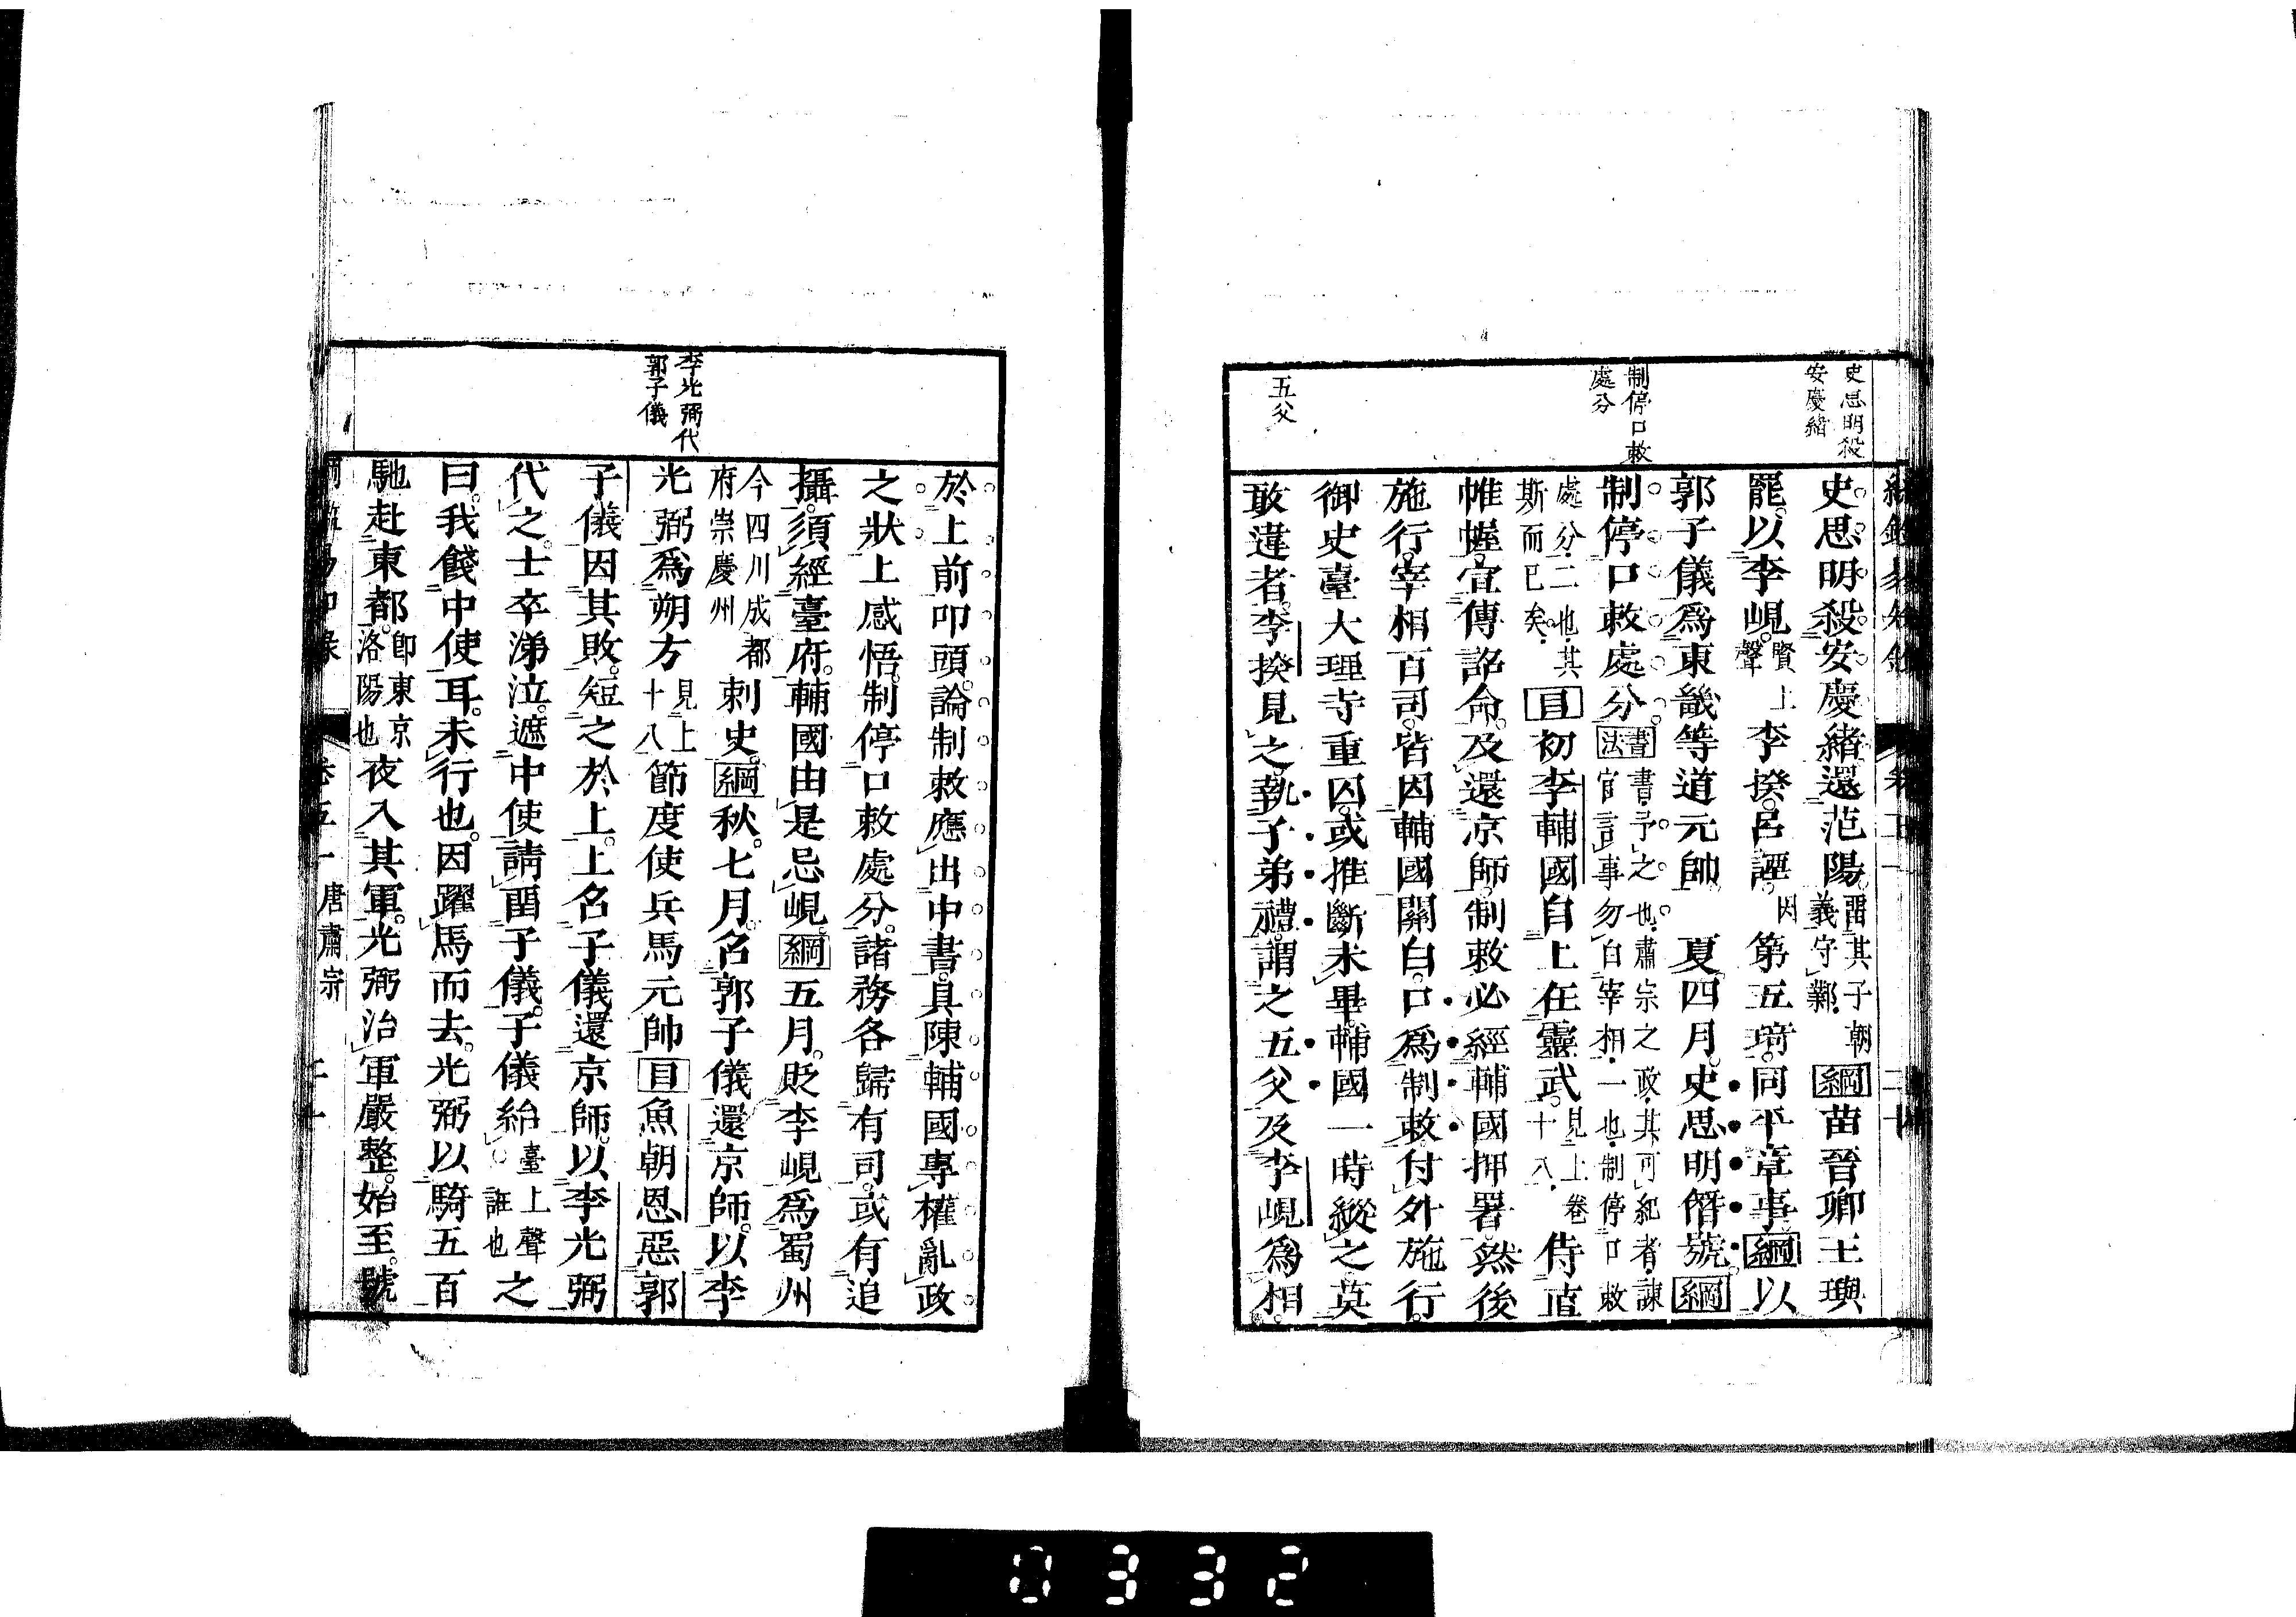 史思明殺
安慶緒
制停口敕
處分
五父
史思明殺安慶緒還范陽。留其子朝義守鄴。綱苗晉卿王璵
罷。以李峴。賢上聲李揆。呂諲。因第五琦。同平章事。綱以
郭子儀爲東畿等道元帥。夏四月。史思明僭號。綱
制停口敕處分。書法書予之也。肅宗之政其可紀者諫官言事勿白宰相一也制停口敕
處分二也其斯而已矣目初李輔國自上在靈武。見上卷十八侍直
帷幄。宣傳詔命。及還京師。制敕必經輔國押署。然後
施行。宰相百司。皆因輔國關白。口爲制敕。付外施行。
御史臺大理寺重囚。或推斷未畢。輔國一時縱之。莫
敢違者。李揆見之執子弟禮。謂之五父。及李峴爲相。
李光弼代
郭子儀
於上前叩頭。論制敕應出中書。具陳輔國專權亂政
之狀。上感悟。制停口敕處分。諸務各歸有司。或有追
攝。須經臺府。輔國由是忌峴。綱五月。貶李峴爲蜀州
今四川成都府崇慶州刺史。綱秋。七月。召郭子儀還京師。以李
光弼爲朔方見上十八節度使兵馬元帥目魚朝恩惡郭
子儀因其敗。短之於上。上召子儀還京師。以李光弼
代之。士卒涕泣。遮中使請留子儀。子儀紿臺上聲誑也之
曰。我餞中使耳。未行也。因躍馬而去。光弼以騎五百
馳赴東都。卽東京洛陽也夜入其軍。光弼治軍嚴整。始至。號
卷五一 唐肅宗 二十